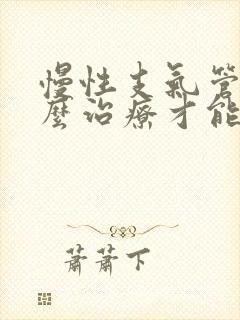 慢性支氣管
麼治療才能
蕭蕭下